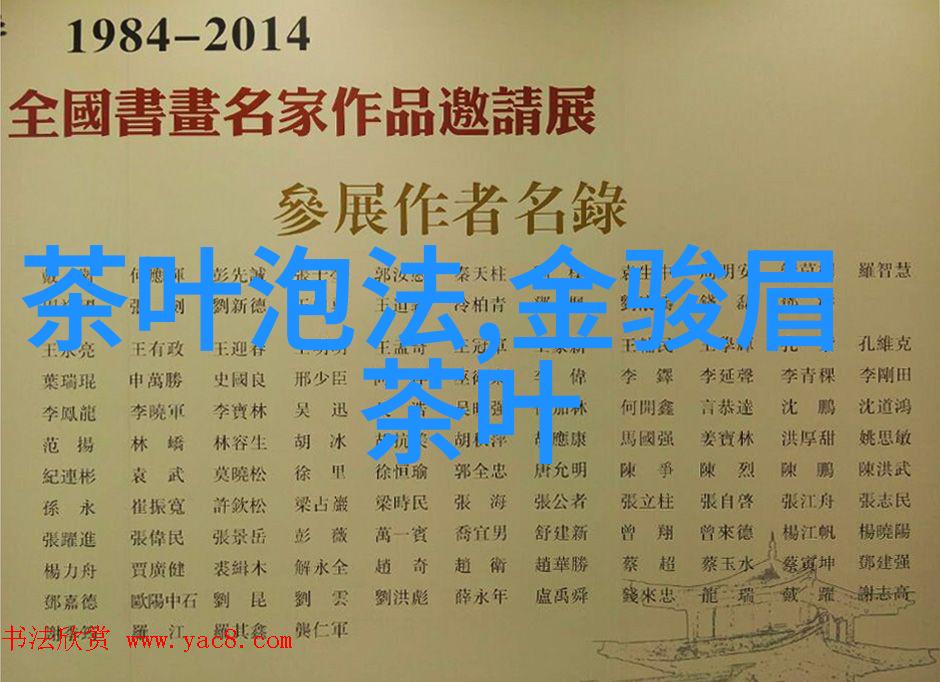 1984-2014
全國書畫名家作品邀請展
參展作者名錄
茶叶泡法,金骏眉
茶叶
彭先誠 郭汝愚 秦天柱 羅智慧
劉新德 冷柏青
王永亮 王有政 王迎春 王明明 王孟奇 孔維克
葉瑞琨 申萬勝 史國良 邢少臣 李偉 李鐸 李延聲 李青稞 李剛田
李鳳龍 李曉軍 李寶林 吳迅 何開鑫 言恭達 沈鵬 沈道鴻
范揚 林嶠 林容生 胡冰 胡應康 馬國强 姜寶林 洪厚甜 姚思敏
紀連彬 袁武 莫曉松 徐里 徐恒瑜 郭全忠 唐允明 陳爭 陳烈 陳鵬 陳洪武
孫永 崔振寬 許欽松 梁占巖 梁時民 張海 張公者 張立柱 張自啓 張江舟 張志民
張躍進 張偉民 張景岳 彭薇 萬一賓 喬宜男 舒建新 曾翔 曾來德 楊江帆 楊曉陽
楊力舟 賈廣健 裘緝木 解永全 趙奇 趙衛 趙華勝 蔡超 蔡玉水 蔡寅坤 鄧建强
鄧嘉德 歐陽中石 劉昆 劉雲 劉洪彪 薛永年 盧禹舜 錢來忠 龍瑞 戴躍 謝志高
羅江 羅其鑫 龔仁軍
书法欣赏 www.yac8.com